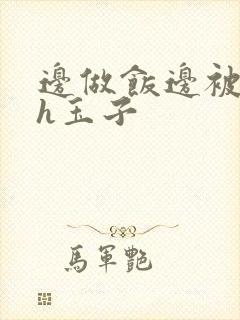 邊做飯邊被
h玉子
馬軍艷